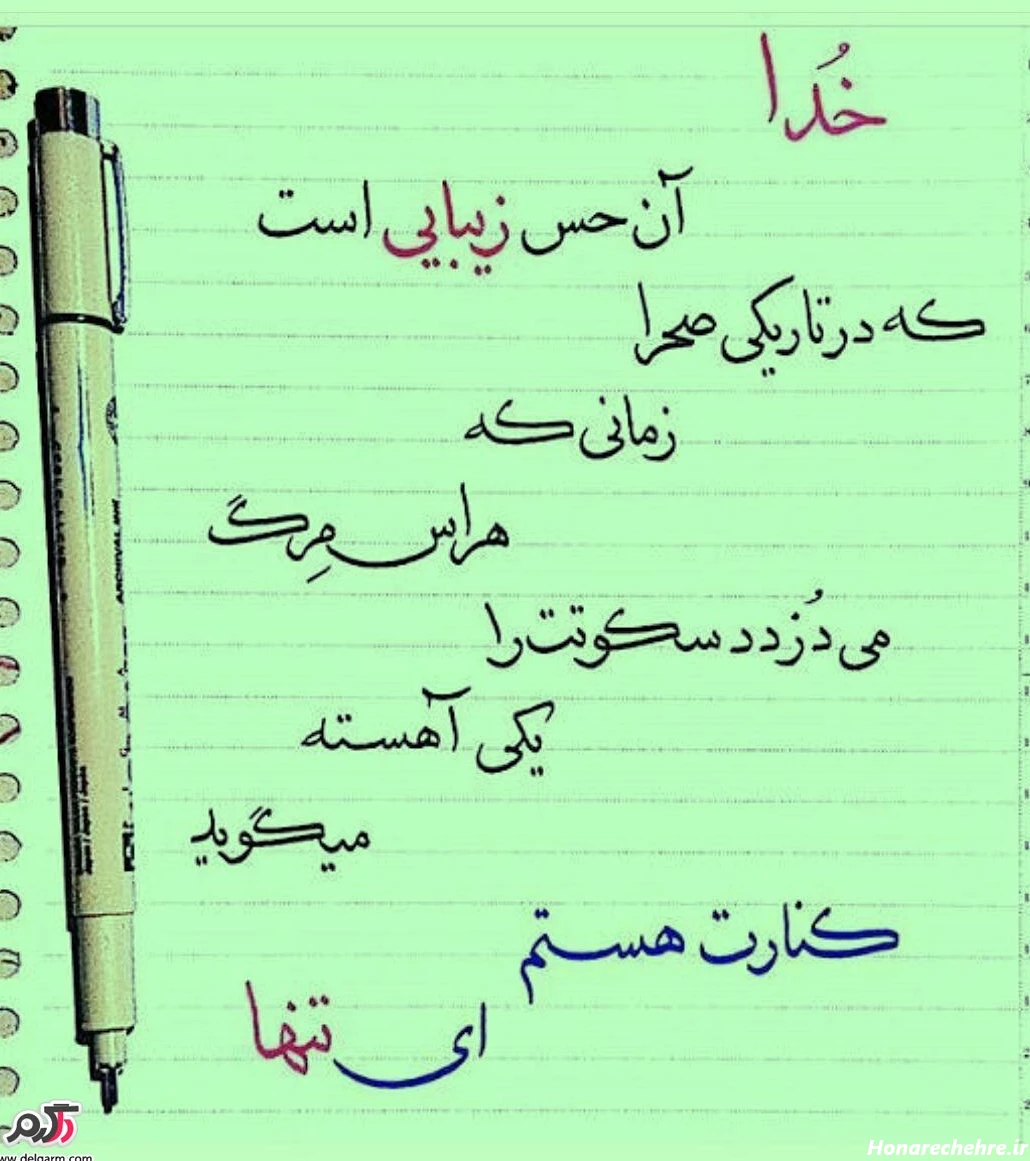 خُدا
آن حس زیبایی است
که در تاریکی صحرا
زمانی که
هراس مِرگ
می دُزدد سکوتت را
یکی آهسته
میگوید
کنارت هستم
ای تنها
دلگرم
www.delgarm.com
Honarechehre.ir